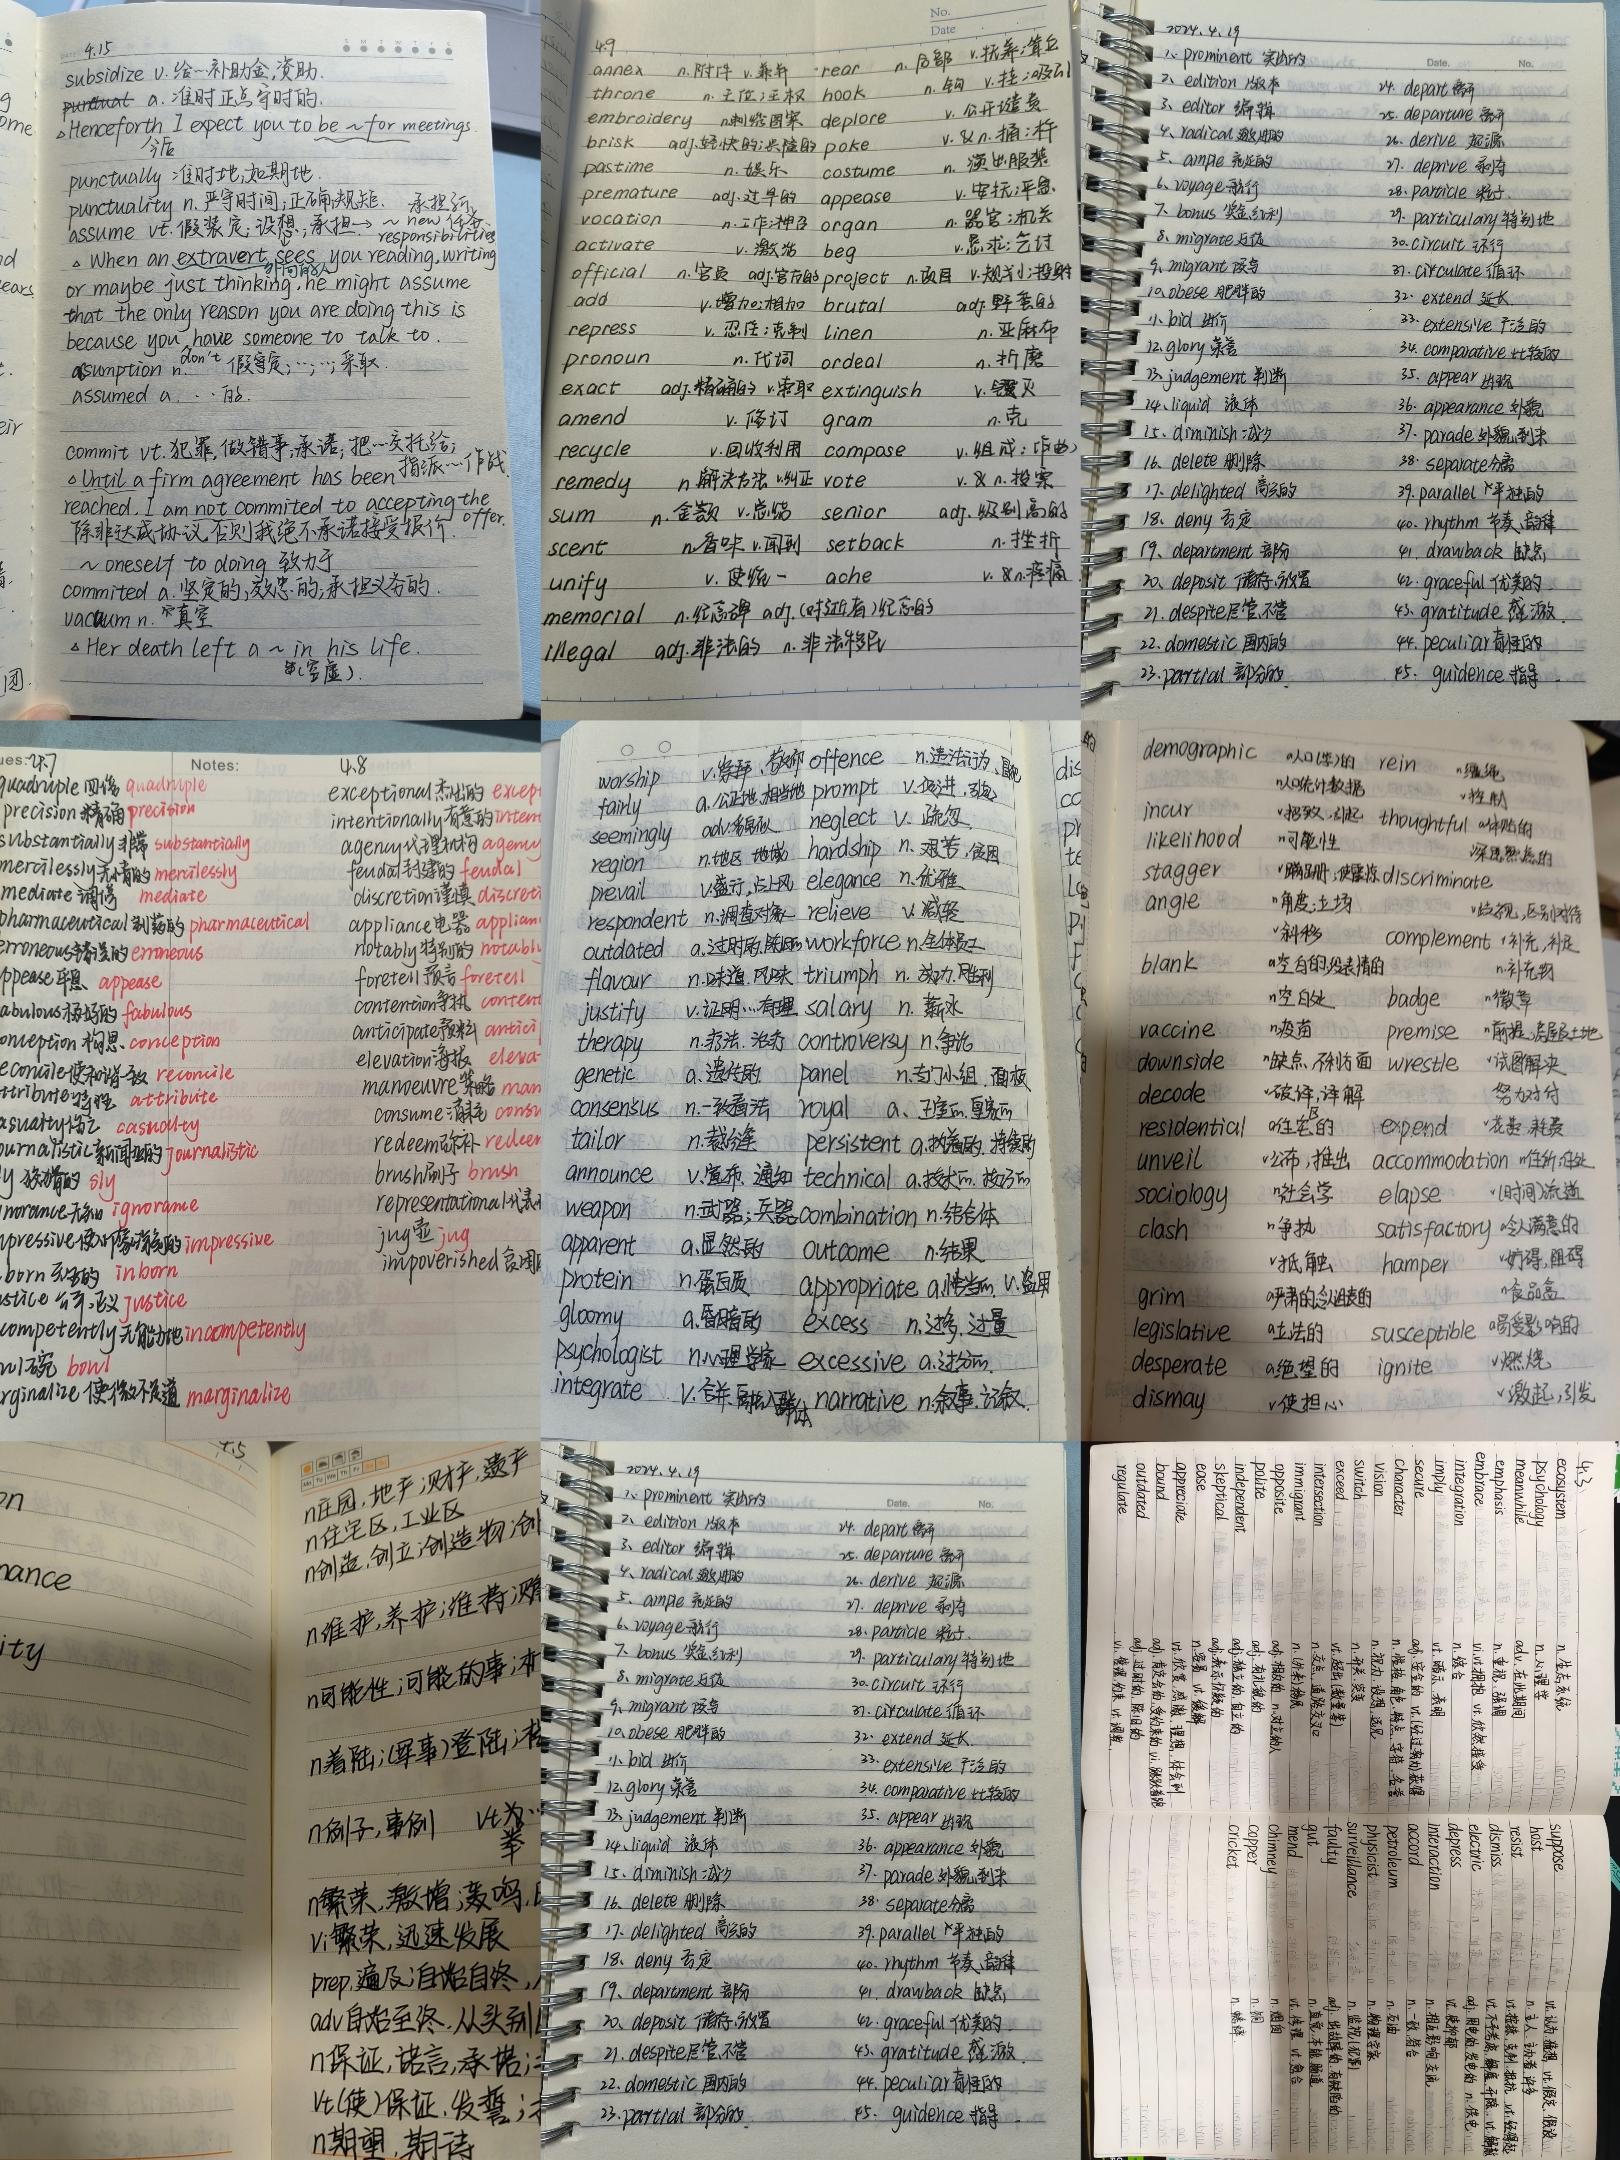 4.15
subsidize v. 给…补助金,资助.
punctual a. 准时正点守时的.
Henceforth I expect you to be ~ for meetings.
今后
punctually 准时地,如期地.
punctuality n. 严守时间;正确;规矩.
assume vt. 假装;假定;设想;承担→ ~ new responsibilities
When an extravert sees you reading, writing
or maybe just thinking, he might assume
that the only reason you are doing this is
because you don't have someone to talk to.
assumption n. 假定;…;…;采取
assumed a. ··的.
commit vt. 犯罪,做错事;承诺;把…交托给;
指派…作战
Until a firm agreement has been
reached, I am not commited to accepting the offer.
除非达成协议,否则我绝不承诺接受报价.
~ oneself to doing 致力于
commited a. 坚定的,效忠的,承担义务的.
vacuum n. 真空
Her death left a ~ in his life.
(空虚).
4.9
No.
Date
annex n.附件 v.兼并 rear n.后部 v.抚养;竖立
throne n.王位;王权 hook n.钩 v.挂;吸引
embroidery n.刺绣图案 deplore v.公开谴责
brisk adj.轻快的;兴隆的 poke v.&n.捅;杵
pastime n.娱乐 costume n.演出服装
premature adj.过早的 appease v.安抚;平息
vocation n.工作;神召 organ n.器官;机关
activate v.激活 beg v.恳求;乞讨
official n.官员 adj.官方的 project n.项目 v.规划;投射
add v.增加;相加 brutal adj.野蛮的
repress v.忍住;克制 linen n.亚麻布
pronoun n.代词 ordeal n.折磨
exact adj.精确的 v.索取 extinguish v.熄灭
amend v.修订 gram n.克
recycle v.回收利用 compose v.组成;(作曲)
remedy n.解决方法 v.纠正 vote v.&n.投票
sum n.金额 v.总结 senior adj.级别高的
scent n.香味 v.闻到 setback n.挫折
unify v.使统一 ache v.&n.疼痛
memorial n.纪念碑 adj.(对逝者)纪念的
illegal adj.非法的 n.非法移民
2024.4.19
Date. No.
1. prominent 突出的
2. edition 版本 24. depart 离开
3. editor 编辑 25. departure 离开
4. radical 激进的 26. derive 起源
5. ample 充足的 27. deprive 剥夺
6. voyage 航行 28. particle 粒子.
7. bonus 奖金红利 29. particulary 特别地
8. migrate 迁徙 30. circuit 环行
9. migrant 移居 31. circulate 循环
10. obese 肥胖的 32. extend 延长
11. bid 出价 33. extensive 广泛的
12. glory 荣誉 34. comparative 比较的
13. judgement 判断 35. appear 出现
14. liquid 液体 36. appearance 外貌
15. diminish 减少 37. parade 外貌,到来
16. delete 删除 38. separate 分离
17. delighted 高兴的 39. parallel 平独的
18. deny 否定 40. rhythm 节奏、韵律
19. department 部份 41. drawback 缺点
20. deposit 储存,放置 42. graceful 优美的
21. despite 尽管,不管 43. gratitude 感激.
22. domestic 国内的 44. peculiar 奇怪的
23. partial 部分的. 45. guidence 指导.
ues: 4.7 Notes: 4.8
quadruple 四倍 quadruple exceptional 杰出的
precision 精确 precision intentionally 有意的
substantially 非常 substantially agency 代理机构 agency
mercilessly 无情的 mercilessly feudal 封建的 feudal
mediate 调停 mediate discretion 谨慎
pharmaceutical 制药的 pharmaceutical appliance 电器
erroneous 错误的 erroneous notably 特别的
appease 平息 appease foretell 预言 foretell
abulous 极好的 fabulous contention 争执
onception 构思 conception anticipate 预料
econcile 使和谐一致 reconcile elevation 海拔
ttribute 特性 attribute manoeuvre 策略
asualty 伤亡 casualty consume 消耗
ournalistic 新闻业的 journalistic redeem 弥补
y 狡猾的 sly brush 刷子 brush
norance 无知 ignorance representational
pressive 使人印象深刻的 impressive jug 壶 jug
born 天生的 inborn impoverished
stice 公平,正义 justice
competently 无能力地 incompetently
wl 碗 bowl
rginalize 使微不足道 marginalize
worship v.崇拜、敬仰 offence n.违法行为,冒犯
fairly a.公正地,相当地 prompt v.促进,引起
seemingly adv.看似 neglect v.疏忽
region n.地区 地域 hardship n.艰苦,贫困
prevail v.盛行,占上风 elegance n.优雅
respondent n.调查对象 relieve v.减轻
outdated a.过时的,陈旧的 workforce n.全体员工
flavour n.味道,风味 triumph n.成功,胜利
justify v.证明…有理 salary n.薪水
therapy n.疗法、治疗 controversy n.争论
genetic a.遗传的 panel n.专门小组、面板
consensus n.一致看法 royal a.王室的、皇家的
tailor n.裁缝 persistent a.执着的,持续的
announce v.宣布、通知 technical a.技术的、技巧的
weapon n.武器;兵器 combination n.结合体
apparent a.显然的 outcome n.结果
protein n.蛋白质 appropriate a.恰当的 v.盗用
gloomy a.昏暗的 excess n.过多,过量
psychologist n.心理学家 excessive a.过分的
integrate v.合并、融入群体 narrative n.叙事、记叙.
demographic a人口(学)的 rein n缰绳
n人口统计数据 v控制
incur v招致,引起 thoughtful a体贴的
likelihood n可能性 深思熟虑的
stagger v蹒跚,使震惊 discriminate
angle n角度;立场 v歧视,区别对待
v斜移 complement v补充,补足
blank a空白的,没表情的 n补充物
n空白处 badge n徽章
vaccine n疫苗 premise n前提;房屋及土地
downside n缺点,不利方面 wrestle v试图解决
decode v破译,译解 努力对付
residential a住宅的 expend v花费,耗费
unveil v公布,推出 accommodation n住所,住处
sociology n社会学 elapse v(时间)流逝
clash n争执 satisfactory a令人满意的
v抵触 hamper v妨碍,阻碍
grim a严肃的,令人沮丧的 n食品盒
legislative a立法的 susceptible a易受影响的
desperate a绝望的 ignite v燃烧
dismay v使担心 v激起,引发
4.5
on
nance
ity
n庄园,地产;财产,遗产
n住宅区,工业区
n创造,创立;创造物;创
n维护,养护;维持;
n可能性;可能的事;
n着陆;(军事)登陆;
n例子,事例 vt为…
举
n繁荣,激增;轰鸣,
vi繁荣,迅速发展
prep,遍及;自始自终,
adv自始至终.从头到
n保证,诺言,承诺;
vt(使)保证,发誓;
n期望,期待
2024.4.19
Date. No.
1. prominent 突出的
2. edition 版本 24. depart 离开
3. editor 编辑 25. departure 离开
4. radical 激进的 26. derive 起源
5. ample 充足的 27. deprive 剥夺
6. voyage 航行 28. particle 粒子.
7. bonus 奖金红利 29. particulary 特别地
8. migrate 迁徙 30. circuit 环行
9. migrant 移居 31. circulate 循环
10. obese 肥胖的 32. extend 延长
11. bid 出价 33. extensive 广泛的
12. glory 荣誉 34. comparative 比较的
13. judgement 判断 35. appear 出现
14. liquid 液体 36. appearance 外貌
15. diminish 减少 37. parade 外貌,到来
16. delete 删除 38. separate 分离
17. delighted 高兴的 39. parallel 平独的
18. deny 否定 40. rhythm 节奏、韵律
19. department 部份 41. drawback 缺点
20. deposit 储存,放置 42. graceful 优美的
21. despite 尽管,不管 43. gratitude 感激.
22. domestic 国内的 44. peculiar 奇怪的
23. partial 部分的. 45. guidence 指导.
4.3
ecosystem n.生态系统
psychology n.心理学
meanwhile adv.在此期间
emphasis n.重视,强调
embrace v.拥抱 vt.欣然接受
integration n.综合
imply vt.暗示,表明
secure adj.安全的
character n.性格,角色,特点,字符,名誉
vision n.视力,设想,远见
switch n.开关,突变
exceed vt.超出(数量等)
intersection n.交点,道路交叉口
immigrant n.(外来)移民
opposite adj.相反的 n.对立的人
polite adj.有礼貌的
independent adj.独立的,自立的
skeptical adj.表示怀疑的
ease n.容易 vt.缓解
appreciate vt.欣赏,感激,理解,体会到
bound
outdated adj.过时的,陈旧的
regulate
suppose vt.认为,猜想 vt.假定,假设
host n.主人,主办者,许多
resist
dismiss
electric
depress vt.使抑郁
interaction n.相互影响,交流
accord n.一致,符合
petroleum n.石油
physicist n.物理学家
surveillance n.监视(犯罪)
faulty adj.出故障的,有缺陷的
gut n.直觉,本能,肠道
mend vt.修理 vi.愈合
chimney n.烟囱
copper n.铜
cricket n.蟋蟀